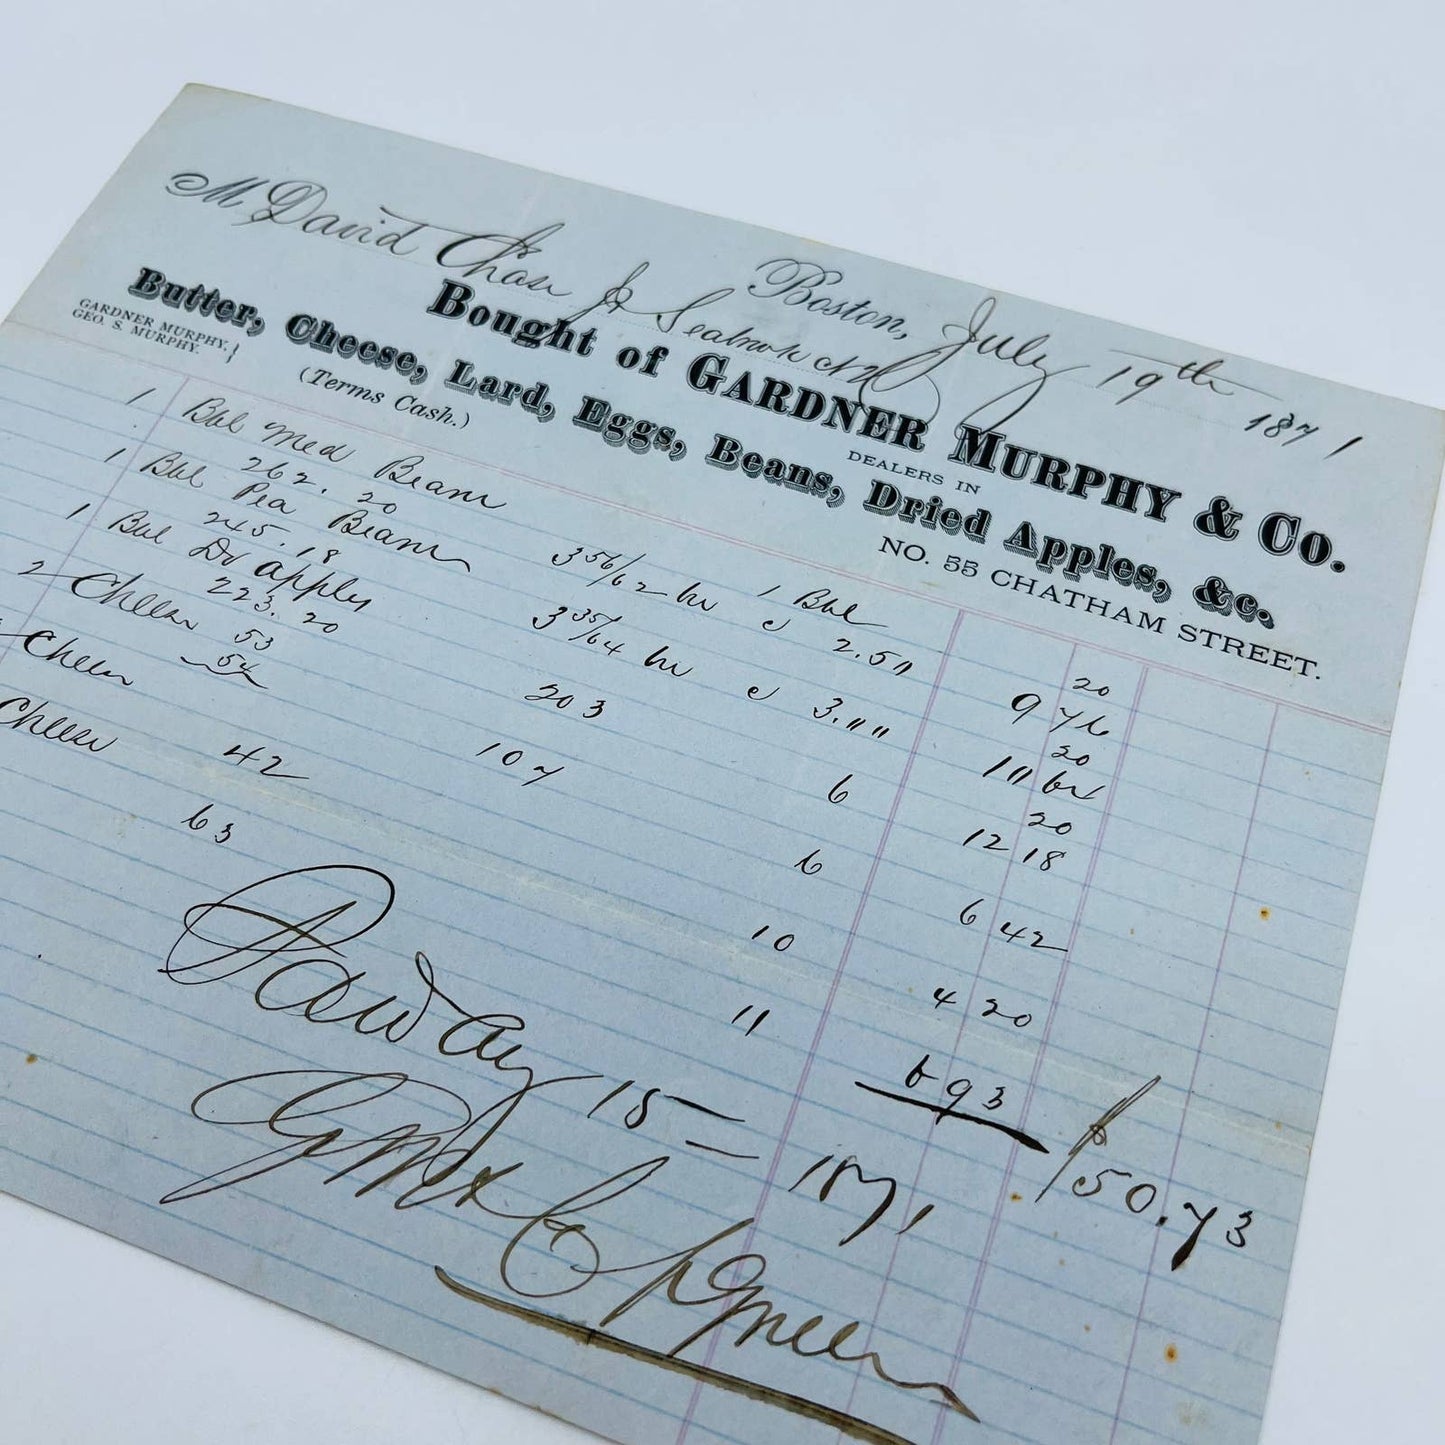 Boston, July 19th 1871
M. David Chase Jr Seabrook NH
Bought of GARDNER MURPHY & Co.
DEALERS IN
Butter, Cheese, Lard, Eggs, Beans, Dried Apples, &c.
GARDNER MURPHY,
GEO. S. MURPHY.
(Terms Cash.)
NO. 55 CHATHAM STREET.
1 Bbl Med Beans 1 Bbl 20
262.20 3 56/62 bu @ 2.50 9 76
1 Bbl Pea Beans 20
245.18 3 35/64 bu @ 3.00 10 64
1 Bbl Dr apples 20
223.20 203 6 12 18
2 Cheese 53
54 107 6 6 42
Cheese 42 10 4 20
Cheese 63 11 6 93
$50.73
Paid Aug 15 1871
G M & Co